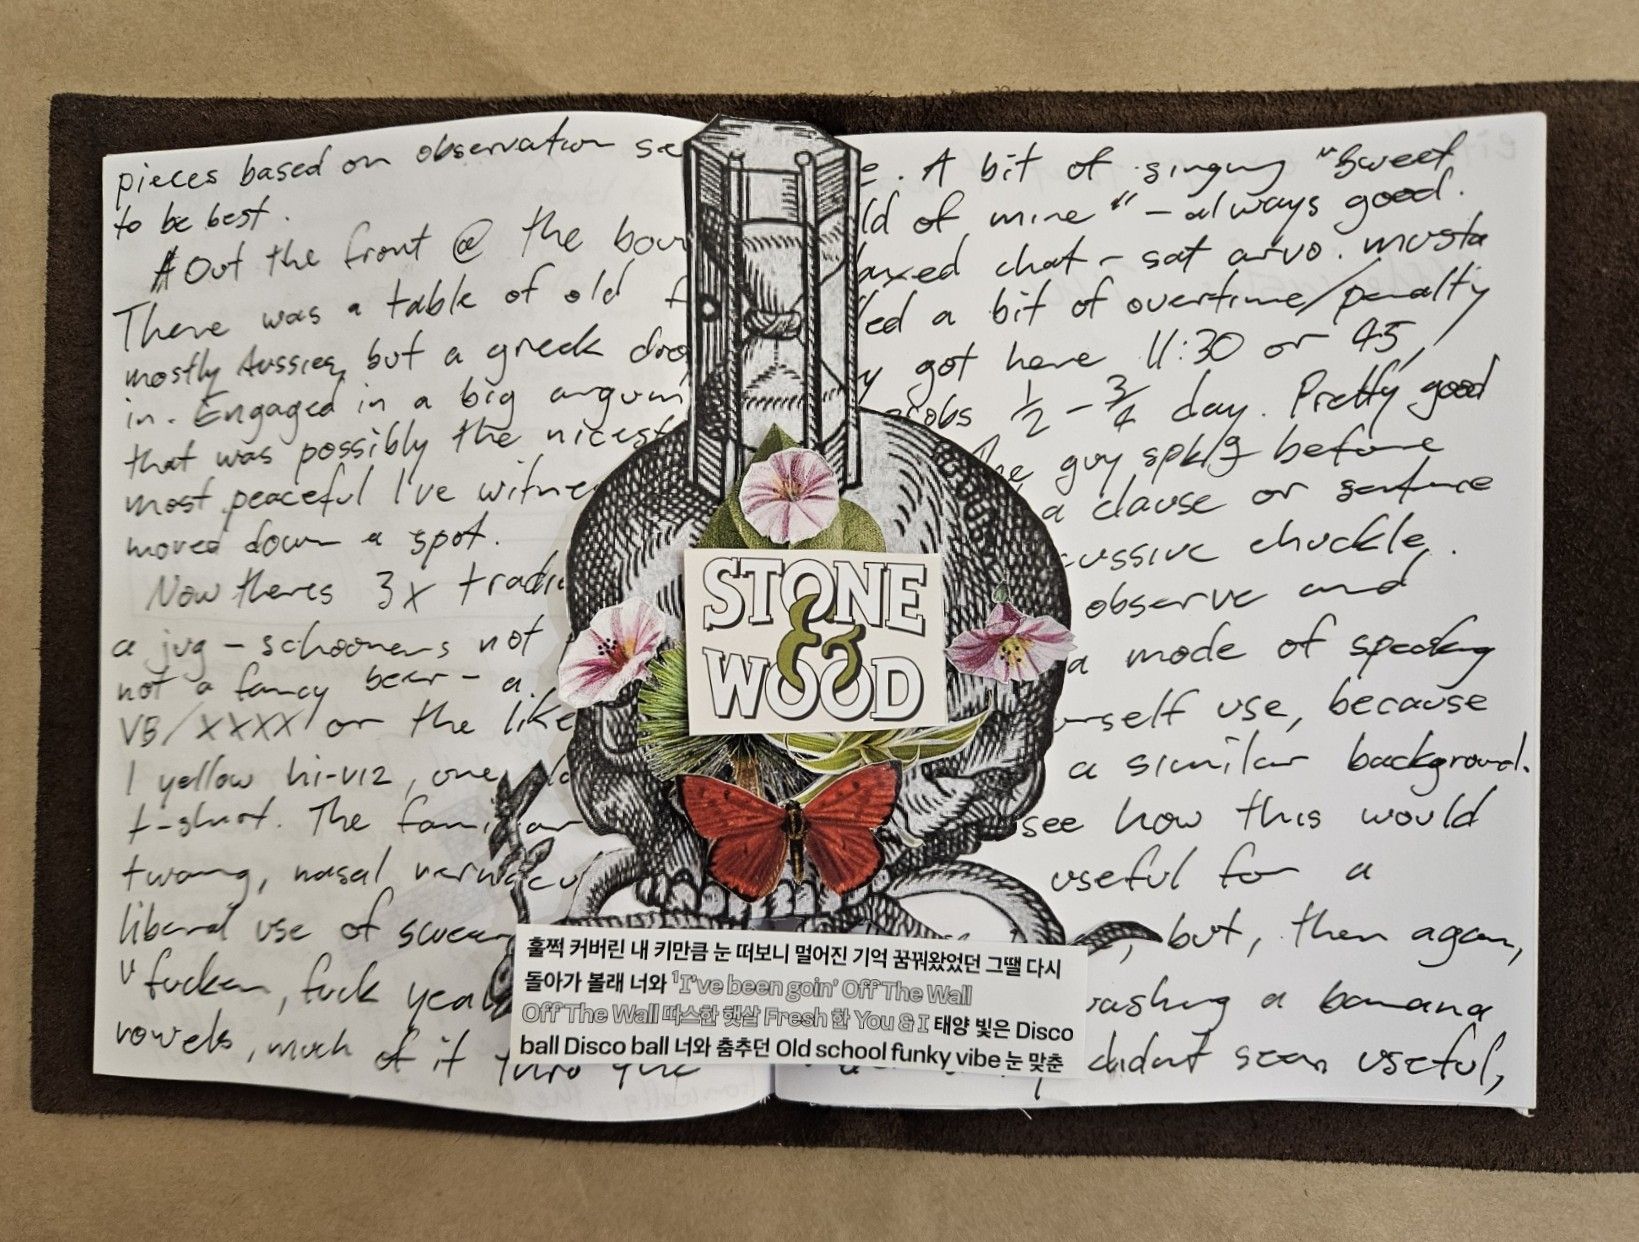 pieces based on observation se
to be best.
Out the front @ the bow
There was a table of old f
mostly Aussies, but a greek
in. Engaged in a big argum
that was possibly the nicest
most peaceful I've witne
moved down a spot.
Now theres 3x tradi
a jug - schooners not
not a fancy beer - a
VB/XXXX or the like
1 yellow hi-viz, one
t-shirt. The familiar
twang, nasal vernacu
liberal use of swear
"fucken, fuck yeah
vowels, much of it
e. A bit of singing "Sweet
ld of mine" - always good.
axed chat - sat arvo. musta
led a bit of overtime/penalty
y got here 11:30 or 45,
jobs 1/2 - 3/4 day. Pretty good
The guy before
a clause or sentence
cussive chuckle.
observe and
a mode of speaking
urself use, because
a similar background.
see how this would
useful for a
, but, then again,
a banana
didnt seem useful,
STONE
&
WOOD
훌쩍 커버린 내 키만큼 눈 떠보니 멀어진 기억 꿈꿔왔었던 그땔 다시
돌아가 볼래 너와 1I've been goin' Off The Wall
Off The Wall 따스한 햇살 Fresh 한 You & I 태양 빛은 Disco
ball Disco ball 너와 춤추던 Old school funky vibe 눈 맞춘